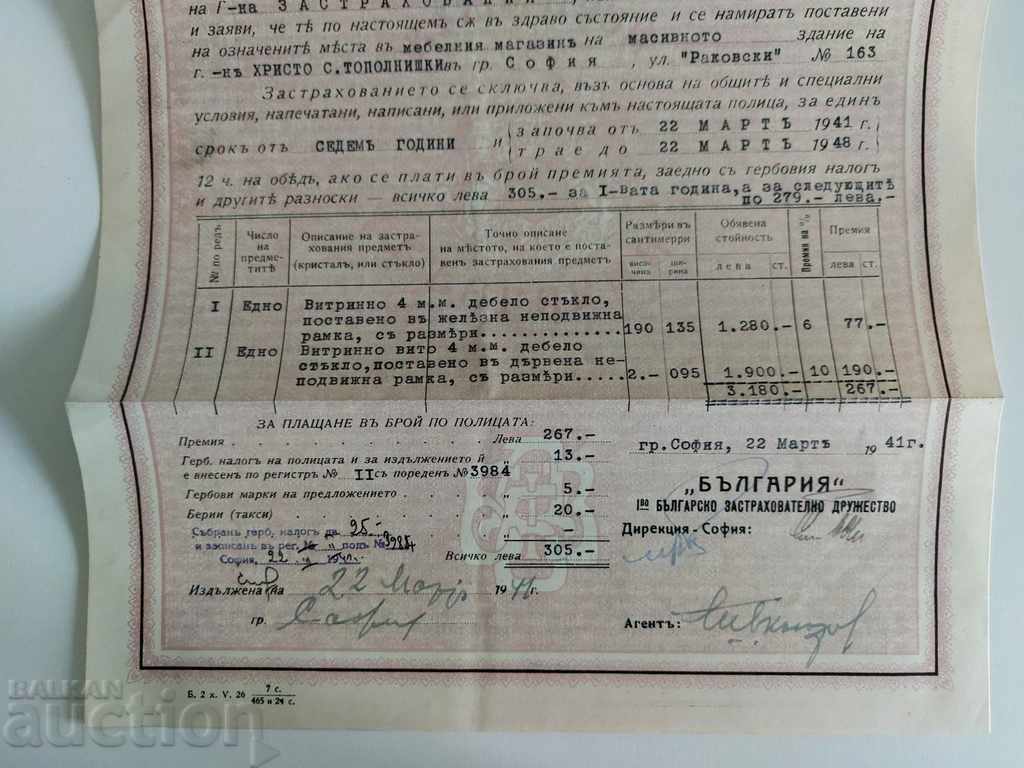 на Г-на ЗАСТРАХОВАНИЯ
и заяви, че тѣ по настоящемъ сѫ въ здраво състояние и се намиратъ поставени
на означенитѣ мѣста въ мебелния магазинъ на масивното здание на
г. -нъ ХРИСТО С.ТОПОЛНИШКИ въ гр. София , ул "Раковски" № 163
Застрахованието се сключва, възъ основа на общитѣ и специални
условия, напечатани, написани, или приложени къмъ настоящата полица, за единъ
срокъ отъ СЕДЕМЬ ГОДИНИ и
започва отъ 22 МАРТЪ 1941 г.
трае до 22 МАРТЪ 1948 г.
12 ч. на обѣдъ, ако се плати въ брой премията, заедно съ гербовия налогъ
и другитѣ разноски — всичко лева 305.- за I-вата година,а за следующитѣ
по 279.- лева.-
№ по редъ
Число на предметитѣ
Описание на застрахования предметъ (кристалъ, или стъкло)
Точно описание на мѣстото, на което е поставенъ застрахования предметъ
Размѣри въ сантиметри
височина
ширина
Обявена стойность
лева ст.
Премия на %
Премия
лева ст.
I Едно Витринно 4 м.м. дебело стъкло,
поставено въ желѣзна неподвижна
рамка, съ размѣри.............. 190 135 1.280.- 6 77.-
II Едно Витринно вито 4 м.м. дебело
стъкло,поставено въ дървена не-
подвижна рамка, съ размѣри..... 2.- 095 1.900.- 10 190.-
3.180.- 267.-
ЗА ПЛАЩАНЕ ВЪ БРОЙ ПО ПОЛИЦАТА:
Премия . . . . . . . . . . Лева 267.-
Герб. налогъ на полицата и за издължението ѝ
е внесенъ по регистръ № II съ пореденъ № 3984 „ 13.-
Гербови марки на предложението . . . . „ 5.-
Берии (такси) . . . . . . . . „ 20.-
„ —
Събранъ герб. налогъ лв. 25.-
и записанъ въ рег. № II подъ № 3984
София, 22
Всичко лева 305.-
Издължена на 22 Мартъ 1941 г.
гр. София
гр.София, 22 Мартъ 1941г.
„БЪЛГАРИЯ"
1ВО БЪЛГАРСКО ЗАСТРАХОВАТЕЛНО ДРУЖЕСТВО
Дирекция - София:
Агентъ:
Б. 2 х. V. 26 7 с. 465 и 24 с.
BALKAN
auction